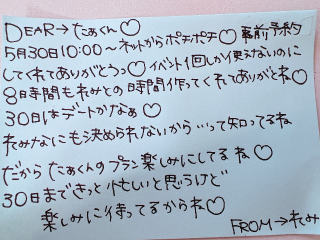 DEAR→たぁくん♡
5月30日10:00〜ネットからポチポチ♡ 事前予約
してくれてありがとうっ♡イベント1回しか使えないのに
8時間もれみとの時間作ってくれてありがとね♡
30日はデートかなぁ♡
れみなにも決められないから…って知ってるね
だから たぁくんのプラン楽しみにしてるね♡
30日まできっと忙しいと思うけど
楽しみに待ってるからね♡
FROM→れみ